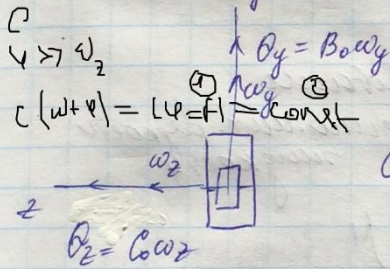 C
φ >> ω_z
θ_y = B₀ω_y
ω_y
① ②
C(ω+φ) = Cφ = H = const
ω_z
z
θ_z = C₀ω_z